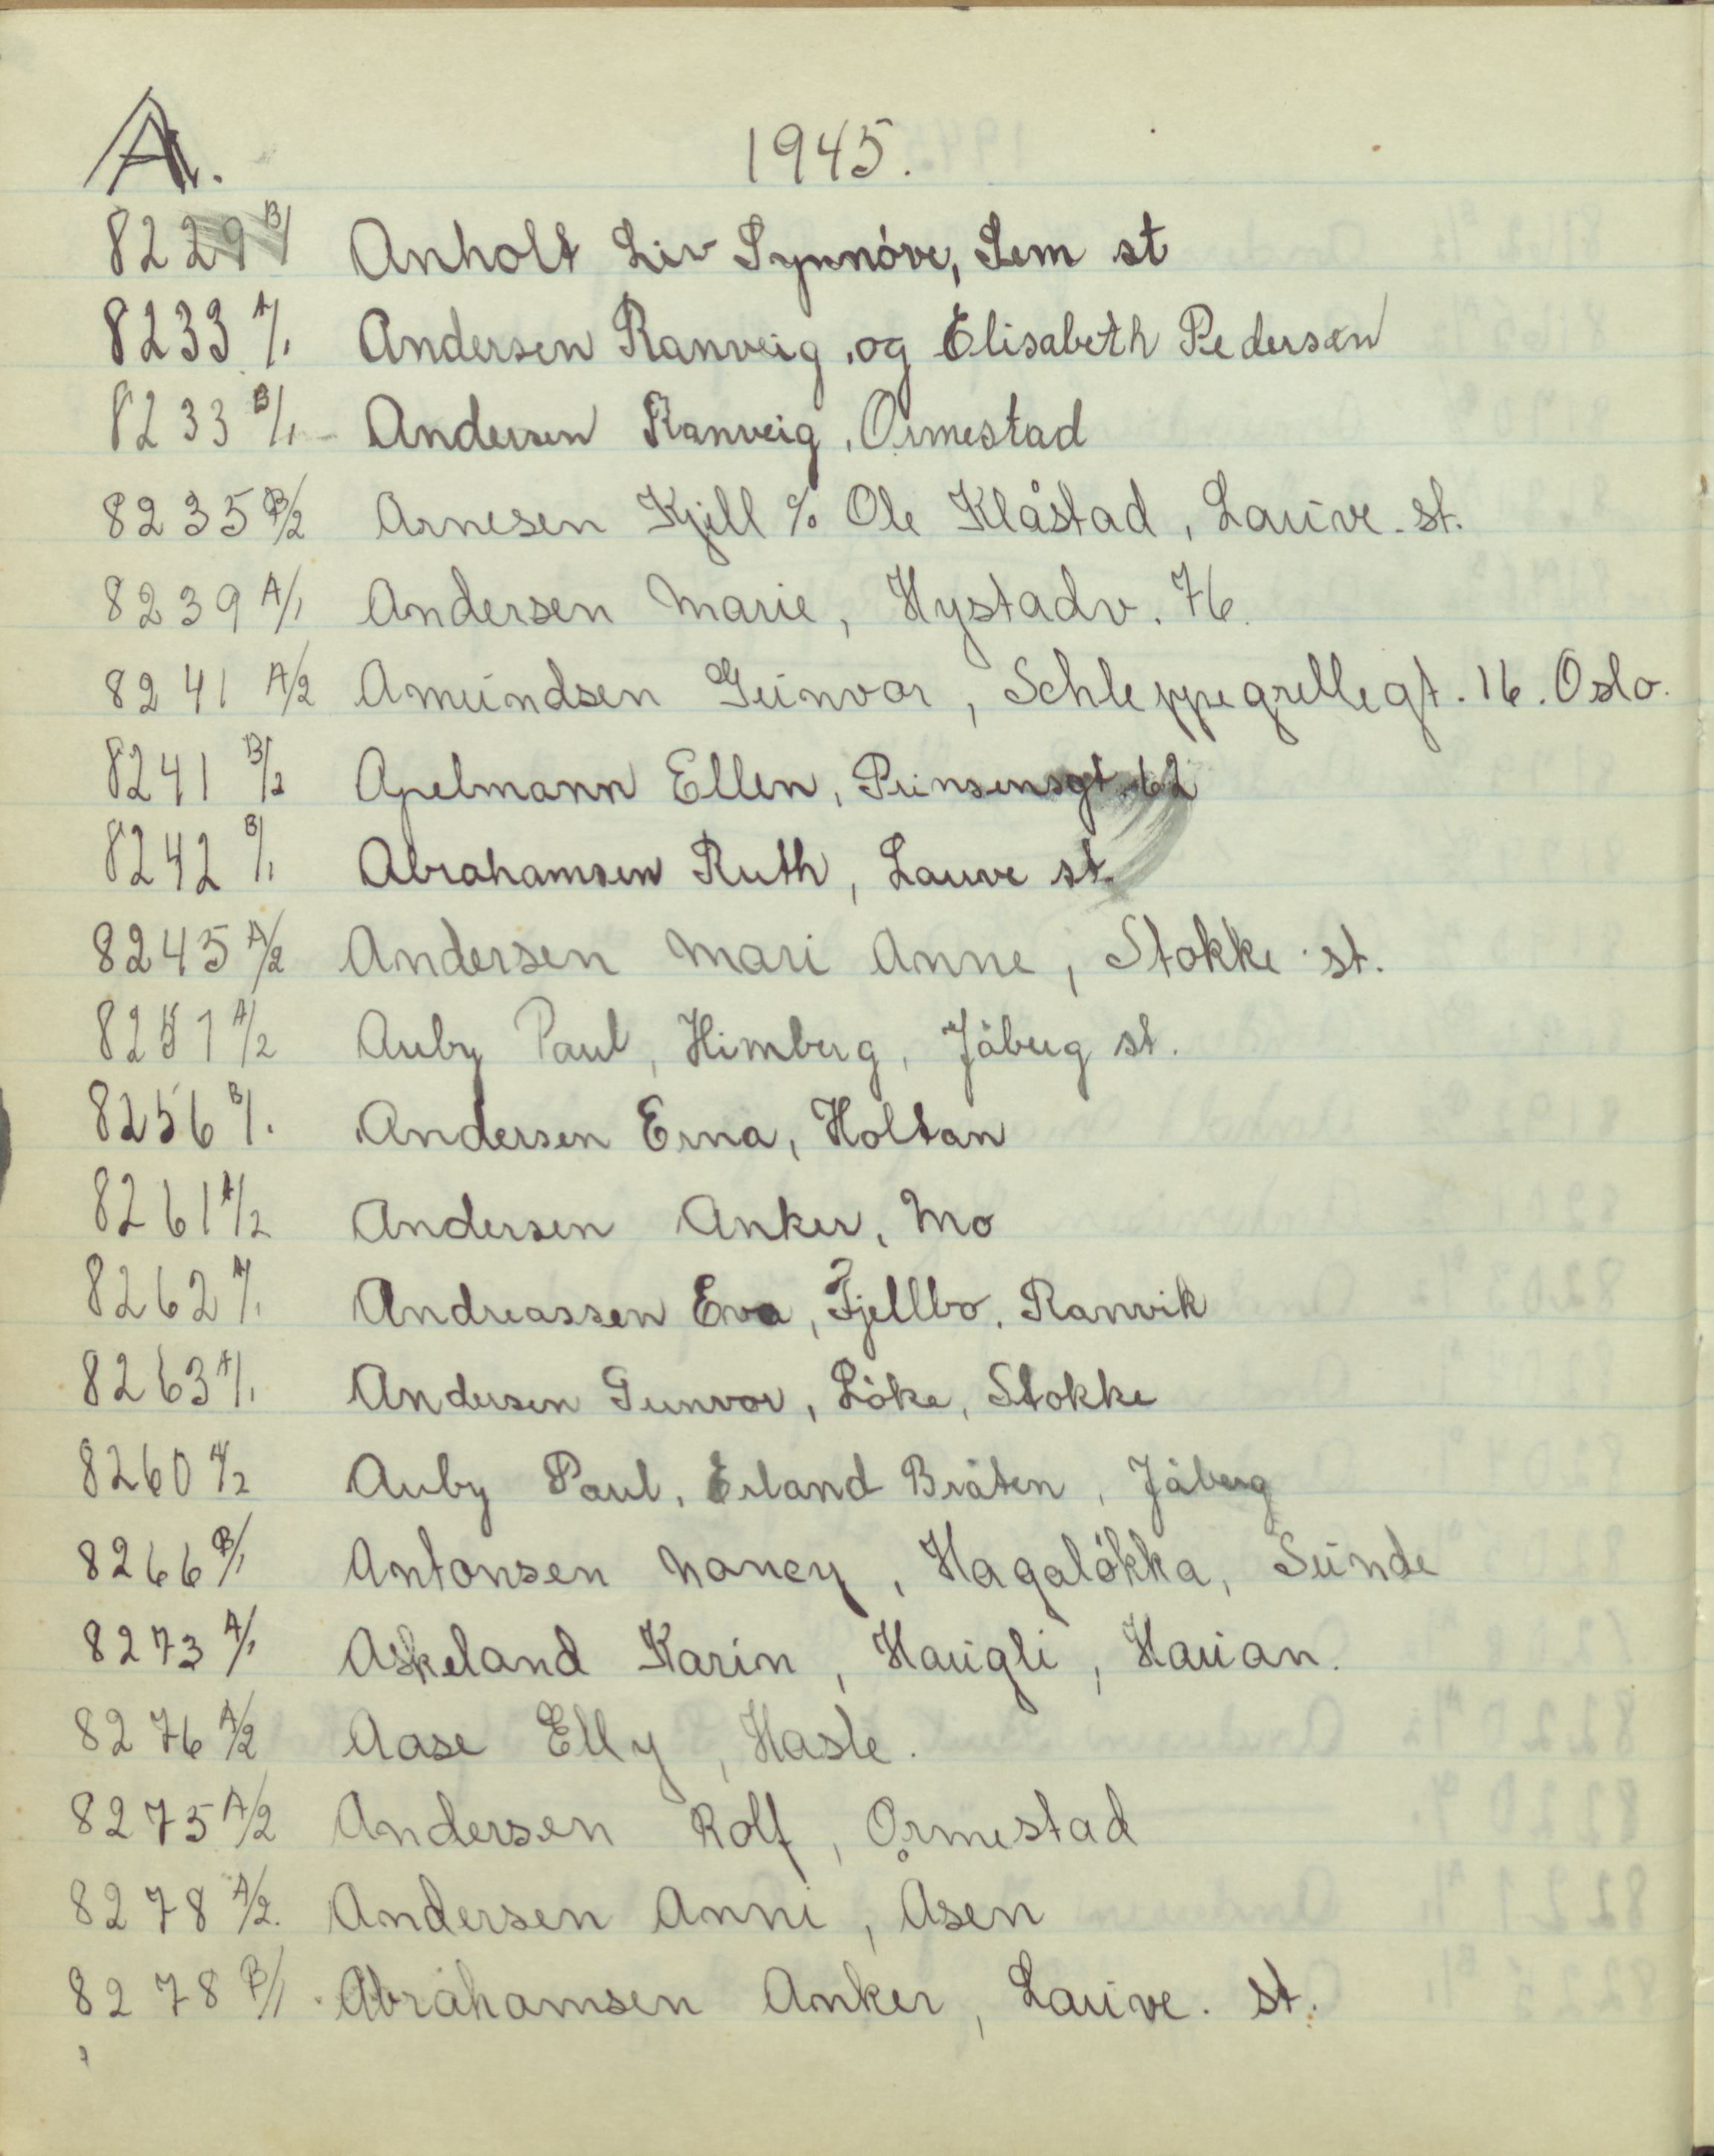 A. 1945.
8229 B/1 Anholt Liv Synnóve, Sem st
8233 A/1 Andersen Ranveig, og Elisabeth Pedersen
8233 B/1 - Andersen Ranveig, Ormestad
8235 B/2 Arnesen Kjell % Ole Klåstad, Lauve. st.
8239 A/1 Andersen Marie, Hystadv. 76.
8241 A/2 Amundsen Gunvor, Schleppegrellegt. 16. Oslo.
8241 B/2 Apelmann Ellen, Prinsensgt. 62
8242 B/1 Abrahamsen Ruth, Lauve st.
8245 A/2 Andersen Mari Anne, Stokke st.
8251 A/2 Auby Paul, Himberg, Jåberg st.
8256 B/1. Andersen Erna, Holtan
8261 A/2 Andersen Anker, Mo
8262 A/1. Andreassen Eva, Fjellbo, Ranvik
8263 A/1. Andersen Gunvor, Lóke, Stokke
8260 A/2 Auby Paul, Erland Bråten, Jåberg
8266 B/1 Antonsen Nancy, Hagalókka, Sunde
8273 A/1 Askeland Karin, Haugli, Hauan.
8276 A/2 Aase Elly, Hasle.
8275 A/2 Andersen Rolf, Ormestad
8278 A/2. Andersen Anni, Åsen
8278 B/1 Abrahamsen Anker, Lauve. st.